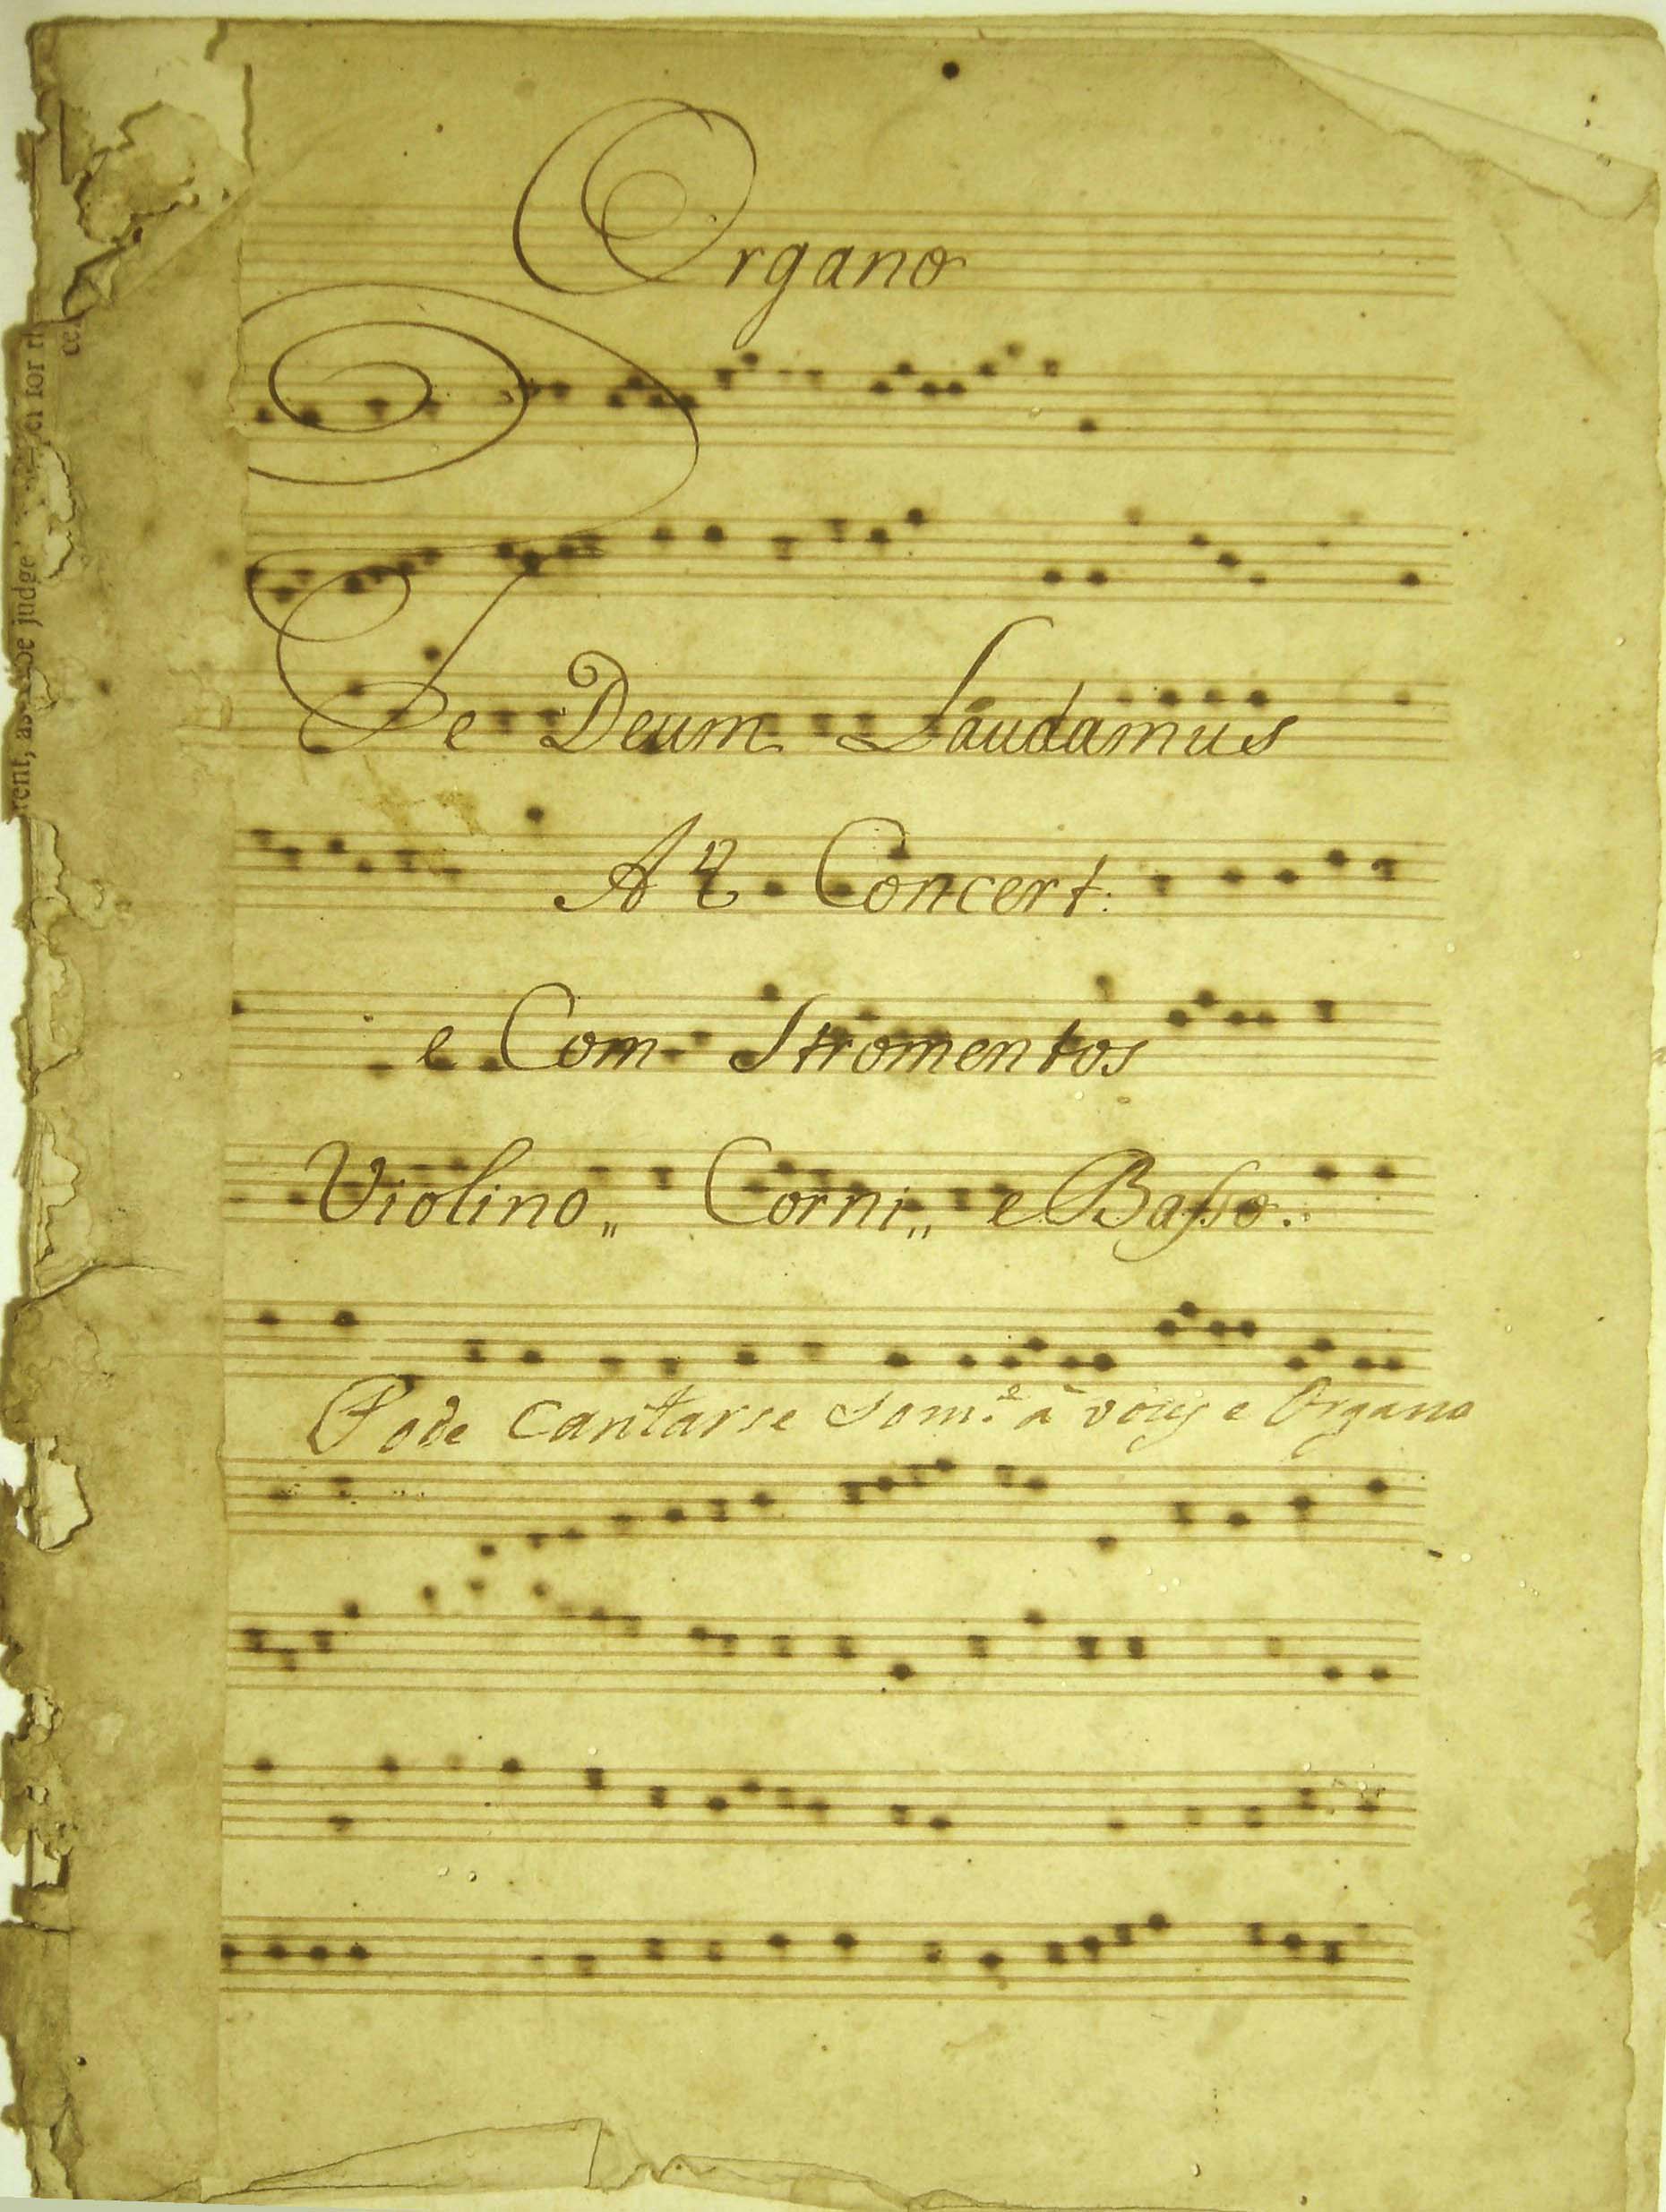 Organo
Te Deum Laudamus
A 4. Concert:
e Com Stromentos
Violino,, Corni,, e Basso.
Pode Cantarse Som.e à vozes e Organo
rent, as be judge